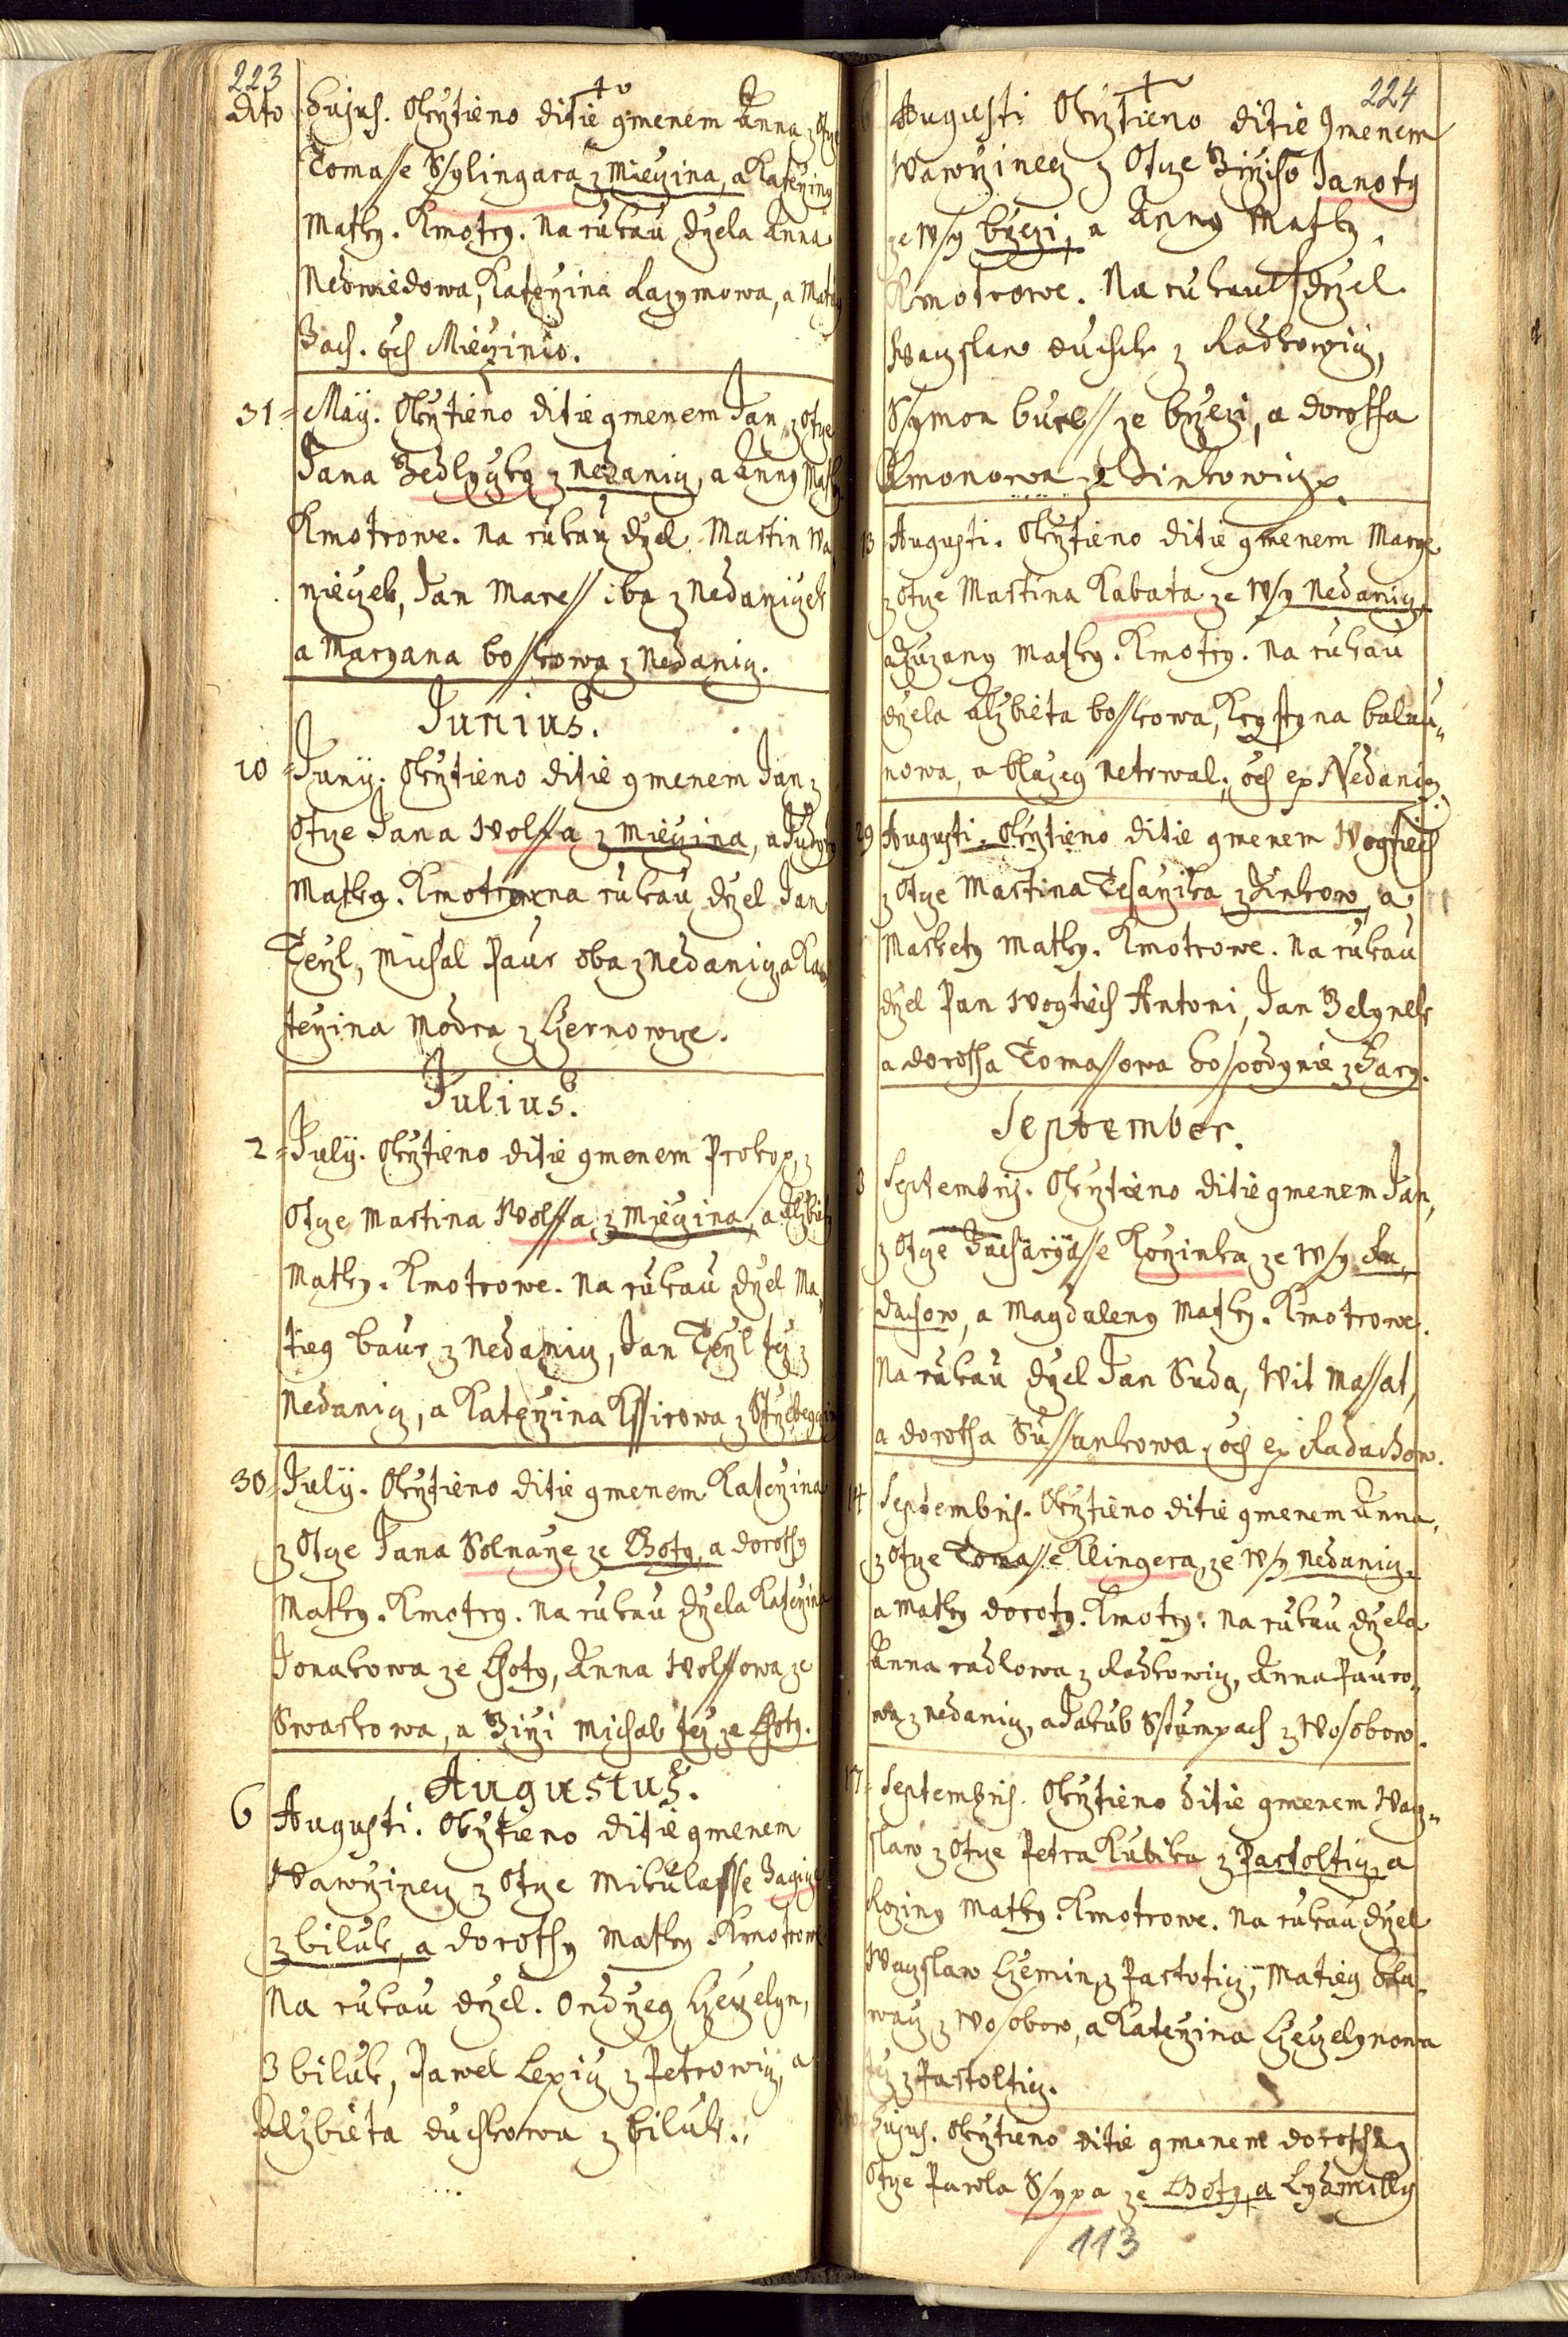 223
dito Hujus. Okrztieno ditie gmenem Anna z Otcze
Tomasse Sylingara z Mieczina, a Katerziny
Matky. Kmotry. Na rukau drzela Anna
Nedwiedowa, Katerzina Lazymowa, a Mat
Zach. ocz Mieczinio.
31 = Maÿ. Okrztieno ditie gmenem Jan, z Otcze
Jana Zedlyczky z Nedanicz, a Anny Matky.
Kmotrowe. Na rukau drzel Martin Wa
nieczek, Jan Maress oba z Nedaniczek
a Maryana bosskowa z Nedanicz.
Junius.
10 = Junÿ. Okrztieno ditie gmenem Jan z
Otcze Jana Wolffa z Mieczina, a Judyty
Matky. Kmotrowe na rukau drzel Jan
Teyzl, Michal Paur oba z Nedanicz, a Ka
terzina Modra z Czernowcze.
Julius.
2 = Julÿ. Okrztieno ditie gmenem Prokop, z
Otcze Martina Wolffa z Mieczina, a Alzbiety
Matky. Kmotrowe. Na rukau drzel Ma
tieg baur z Nedanicz, Jan Teyzl tez z
Nedanicz, a Katerzina Kssirowa z
30 = Julÿ. Okrztieno ditie gmenem Katerzina
z Otcze Jana Solnarze ze Lhoty, a dorothy
Matky. Kmotry. Na rukau drzela Katerzina
Jonakowa ze Lhoty, Anna Wolffowa ze
Swarkowa, a Girzi Michal tez ze Lhoty.
Augustus.
6 Augusti. Okrztieno ditie gmenem
Wawrzinecz z Otcze Mikulasse
z biluk, a dorothy Matky. Kmotrowe
Na rukau drzel. Ondrzeg Czeczelyn,
z biluk, Pawel Lepicz z Petrowicz, a
Alzbieta duchkowa z biluk.
224
Augusti Okrztieno ditie Gmenem
Wawrzinecz z Otcze Girziho Janoty
ze Wsy brzezi, a Anny Matky.
Kmotrowe. Na rukau drzel
Waczslaw duchek z Radkowicz,
Symon buress ze brzezi, a dorotha
Kmonowa z Zinkowicz.
13 Augusti. Okrztieno ditie gmenem Marge
z Otcze Martina Kabata ze Wsy Nedanicz,
a Zuzany Matky. Kmotry. Na rukau
drzela Alzbieta bosskowa, Krystyna balau=
nowa, a blazeg Netrwal. ocz ex Nedanicz.
29 Augusti. Okrztieno ditie gmenem Wogtiech
z Otcze Martina Tesarzika z Zinkow, a
Markety Matky. Kmotrowe. Na rukau
drzel Pan Wogtiech Antoni, Jan Belynek
a dorotha Tomassowa hospodynie z Hary.
September.
3 Septembris. Okrztieno ditie gmenem Jan,
z Otcze Zacharyasse Korzinka ze Wsy Ra,
dachow, a Magdaleny Matky. Kmotrowe.
Na rukau drzel Jan Suda, Wit Massat,
a dorotha Sussankowa, ocz ex Radachow.
14 Septembris. Okrztieno ditie gmenem Anna,
z Otcze Tomasse Klingera, ze Wsy Nedanicz
a Matky doroty. Kmotry. Na rukau drzela
Anna radlowa z Radkowicz, Anna Pauro,
wa z nedanicz, a Jakub Sstumpach z Wosobow.
17 = Septembris. Okrztieno ditie gmenem Wacz=
slaw z Otcze Petra Kubika z Partolticz, a
Roziny Matky. Kmotrowe. Na rukau drzel
Waczslaw Czemin z Partoticz, Matieg hla,
wacz z Wosobow, a Katerzina Czeczelynowa
tez z Partolticz.
Hujus. Okrztieno ditie gmenem dorotha z
Otcze Pawla Ssypa ze Lhoty, a Lydmilly
113